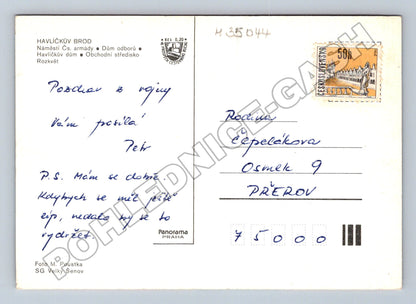 HAVLÍČKŮV BROD
Náměstí Čs. armády • Dům odborů •
Havlíčkův dům • Obchodní středisko
Rozkvět
Kčs 0,80
H35044
ČESKOSLOVENSKO
50h
Pozdrav z vojny
Vám posílá
Petr
P.S. Mám se dobře.
Kdybych se měl ještě
líp, nedalo by se to
vydržet
Rodina
Čepeláková
Osmek 9
PŘEROV
75000
Panorama
PRAHA
Foto M. Povatka
SG Velký Šenov
POHLEDNICE-GASH